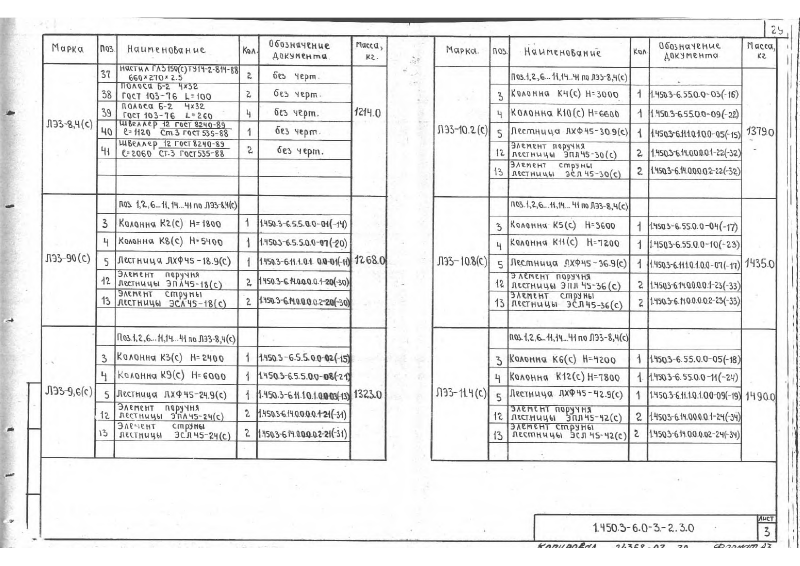 25
Марка Поз. Наименование Кол. Обозначение документа Масса, кг.
ЛЭЗ-8,4(с) 1214.0
37 Настил ГЛЗ 2 без черт.
660×270×2.5
38 Полоса Б-2 4×32 2 без черт.
ГОСТ 103-76 L=100
39 Полоса Б-2 4×32 4 без черт.
ГОСТ 103-76 L=260
40 Швеллер 12 ГОСТ 8240-89 1 без черт.
ℓ=1120 Ст.3 ГОСТ 535-88
41 Швеллер 12 ГОСТ 8240-89 2 без черт.
ℓ=2060 Ст.3 ГОСТ 535-88
ЛЭЗ-9.0(с) 1268.0
Поз. 1,2,6...11,14...41 по ЛЭЗ-8,4(с)
3 Колонна К2(с) H=1800 1 1.450.3-6.5.5.0.0-01(-14)
4 Колонна К8(с) H=5400 1 1.450.3-6.5.5.0.0-07(-20)
5 Лестница ЛХФ45-18.9(с) 1 1.450.3-6.11.1.0.1.00-01(-11)
12 Элемент поручня
лестницы ЭПЛ45-18(с) 2 1.450.3-6.14.0.0.0.1-20(-30)
13 Элемент струны
лестницы ЭСЛ45-18(с) 2 1.450.3-6.14.0.0.0.2-20(-30)
ЛЭЗ-9,6(с) 1323.0
Поз. 1,2,6...11,14...41 по ЛЭЗ-8,4(с)
3 Колонна К3(с) H=2400 1 1.450.3-6.5.5.0.0-02(-15)
4 Колонна К9(с) H=6000 1 1.450.3-6.5.5.0.0-08(-21)
5 Лестница ЛХФ45-24.9(с) 1
12 Элемент поручня
лестницы ЭПЛ45-24(с) 2 1.450.3-6.14.0.0.0.1-21(-31)
13 Элемент струны
лестницы ЭСЛ45-24(с) 2 1.450.3-6.14.0.0.0.2-21(-31)
Марка Поз. Наименование Кол Обозначение документа Масса, кг
ЛЭЗ-10.2(с) 1379.0
Поз. 1,2,6...11,14...41 по ЛЭЗ-8,4(с)
3 Колонна К4(с) H=3000 1 1.450.3-6.5.5.0.0-03(-16)
4 Колонна К10(с) H=6600 1 1.450.3-6.5.5.0.0-09(-22)
5 Лестница ЛХФ45-30.9(с) 1 1.450.3-6.11.1.0.1.00-05(-15)
12 Элемент поручня
лестницы ЭПЛ45-30(с) 2 1.450.3-6.14.0.0.0.1-22(-32)
13 Элемент струны
лестницы ЭСЛ45-30(с) 2 1.450.3-6.14.0.0.0.2-22(-32)
ЛЭЗ-10.8(с) 1435.0
Поз. 1,2,6...11,14...41 по ЛЭЗ-8,4(с)
3 Колонна К5(с) H=3600 1 1.450.3-6.5.5.0.0-04(-17)
4 Колонна К11(с) H=7200 1 1.450.3-6.5.5.0.0-10(-23)
5 Лестница ЛХФ45-36.9(с) 1 1.450.3-6.11.1.0.1.00-07(-17)
12 Элемент поручня
лестницы ЭПЛ45-36(с) 2 1.450.3-6.14.0.0.0.1-23(-33)
13 Элемент струны
лестницы ЭСЛ45-36(с) 2 1.450.3-6.14.0.0.0.2-23(-33)
ЛЭЗ-11.4(с) 1490.0
Поз. 1,2,6...11,14...41 по ЛЭЗ-8,4(с)
3 Колонна К6(с) H=4200 1 1.450.3-6.5.5.0.0-05(-18)
4 Колонна К12(с) H=7800 1 1.450.3-6.5.5.0.0-11(-24)
5 Лестница ЛХФ45-42.9(с) 1 1.450.3-6.11.1.0.1.00-09(-19)
12 Элемент поручня
лестницы ЭПЛ45-42(с) 2 1.450.3-6.14.0.0.0.1-24(-34)
13 Элемент струны
лестницы ЭСЛ45-42(с) 2 1.450.3-6.14.0.0.0.2-24(-34)
1.450.3-6.0-3.-2.3.0
Лист
3
Копировал Формат А3